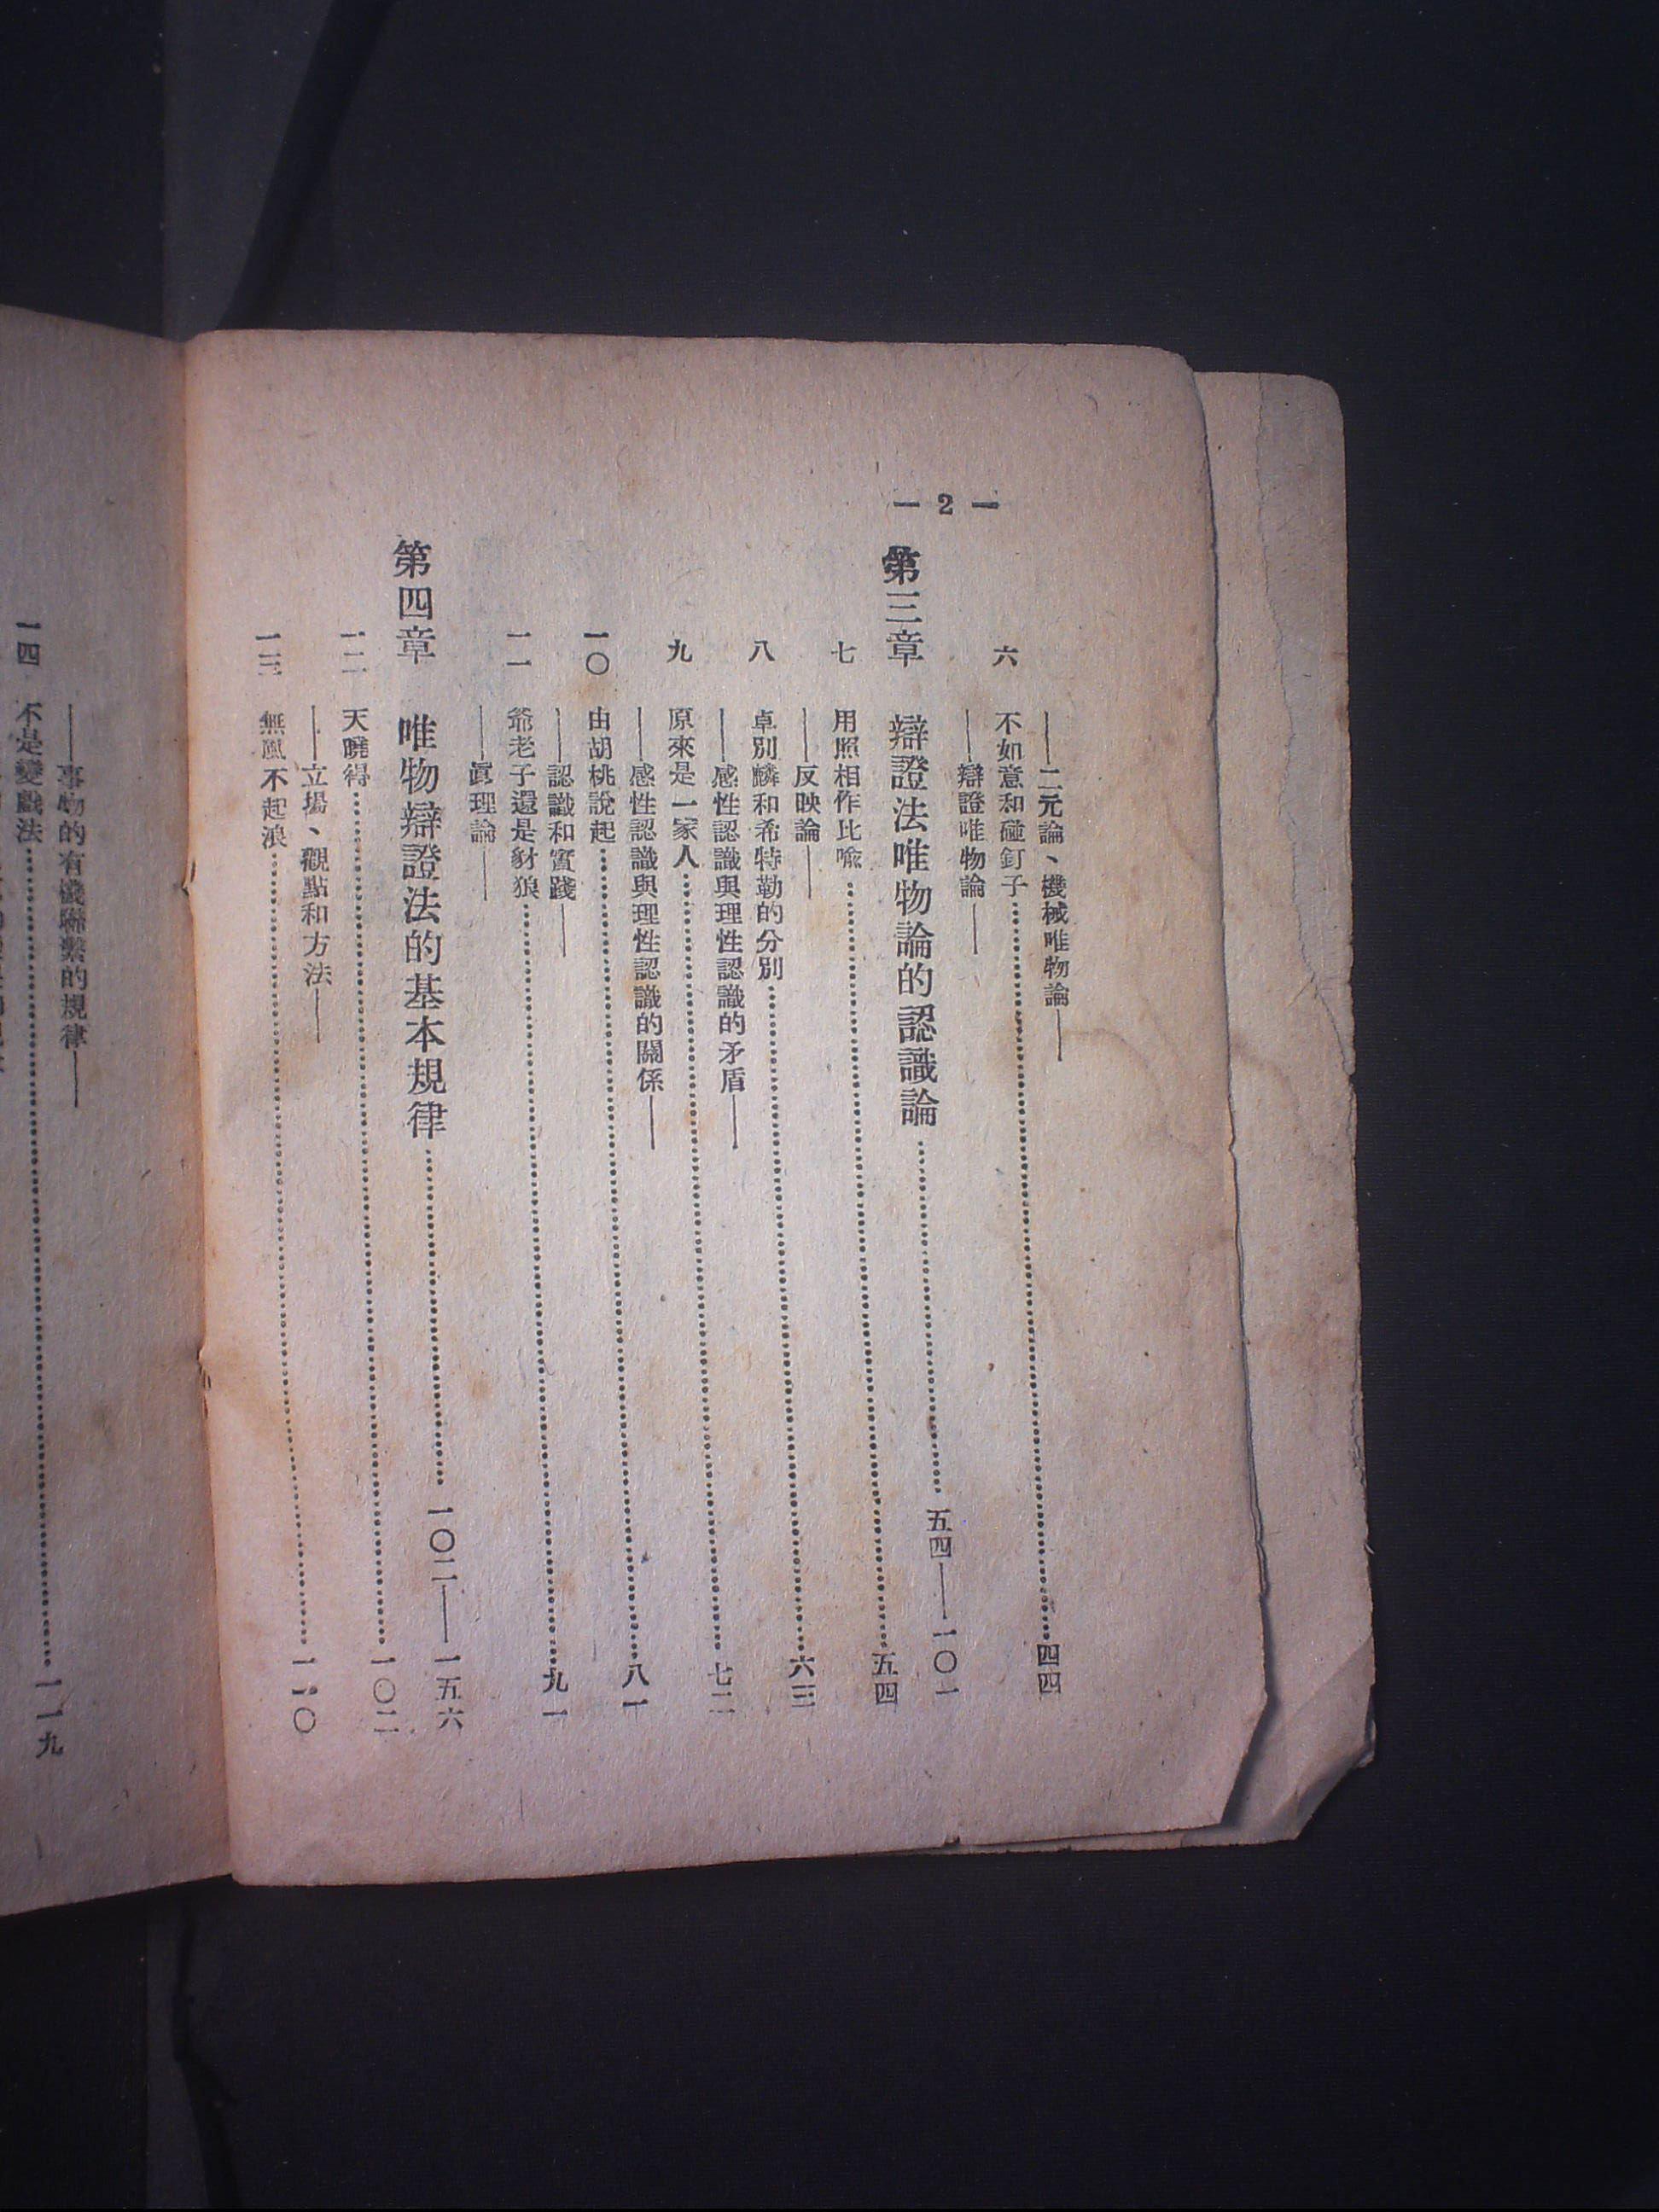 — 2 —
——二元論、機械唯物論——
六 不如意和碰釘子……四四
——辯證唯物論——
第三章 辯證法唯物論的認識論……五四——一〇一
七 用照相作比喻……五四
——反映論——
八 卓別麟和希特勒的分別……六三
——感性認識與理性認識的矛盾——
九 原來是一家人……七二
——感性認識與理性認識的關係——
一〇 由胡桃說起……八一
——認識和實踐——
一一 爺老子還是豺狼……九一
——眞理論——
第四章 唯物辯證法的基本規律……一〇二——一五六
一二 天曉得……一〇二
——立場、觀點和方法——
一三 無風不起浪……一一〇
——事物的有機聯繫的規律——
一四 不是變戲法……一一九